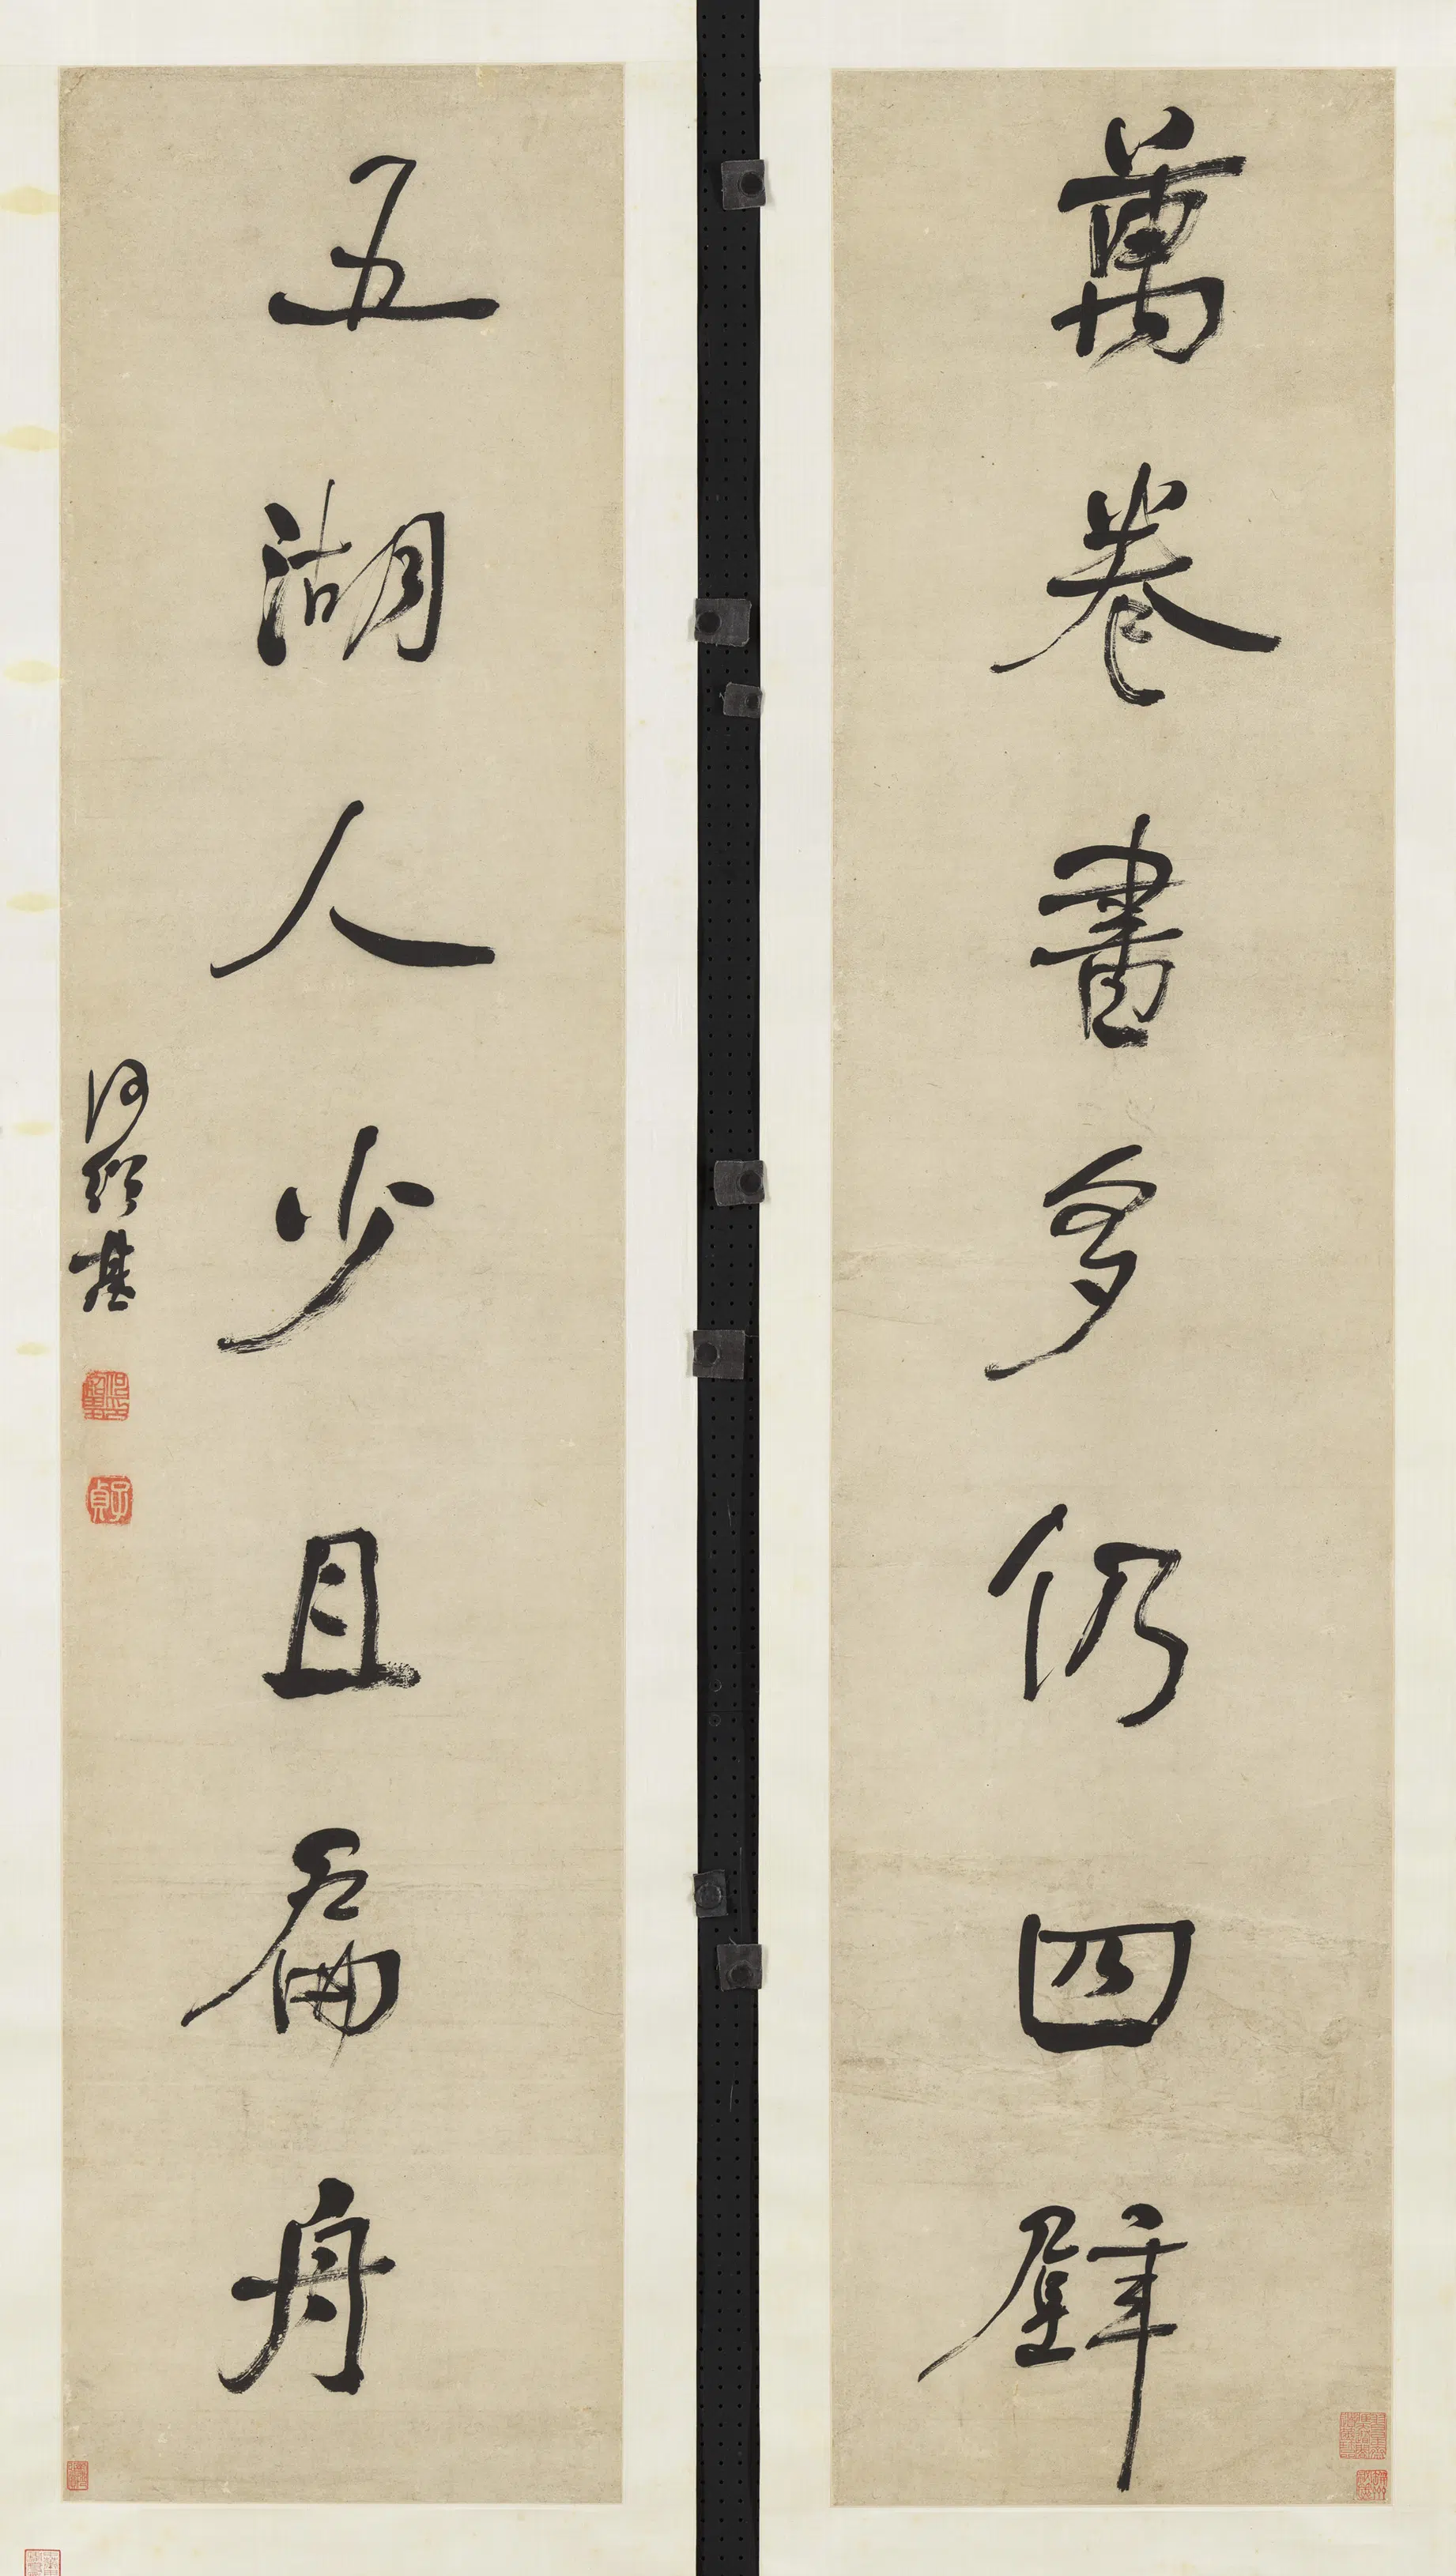 萬卷書多仍四壁
五湖人少且扁舟
何紹基
子貞